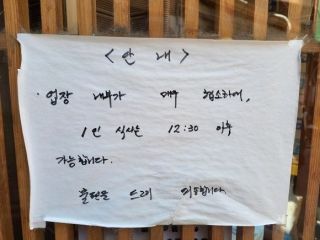 < 안 내 >
· 업장 내부가 매우 협소하여,
1인 식사는 12:30 이후
가능합니다.
불편을 드려 죄송합니다.